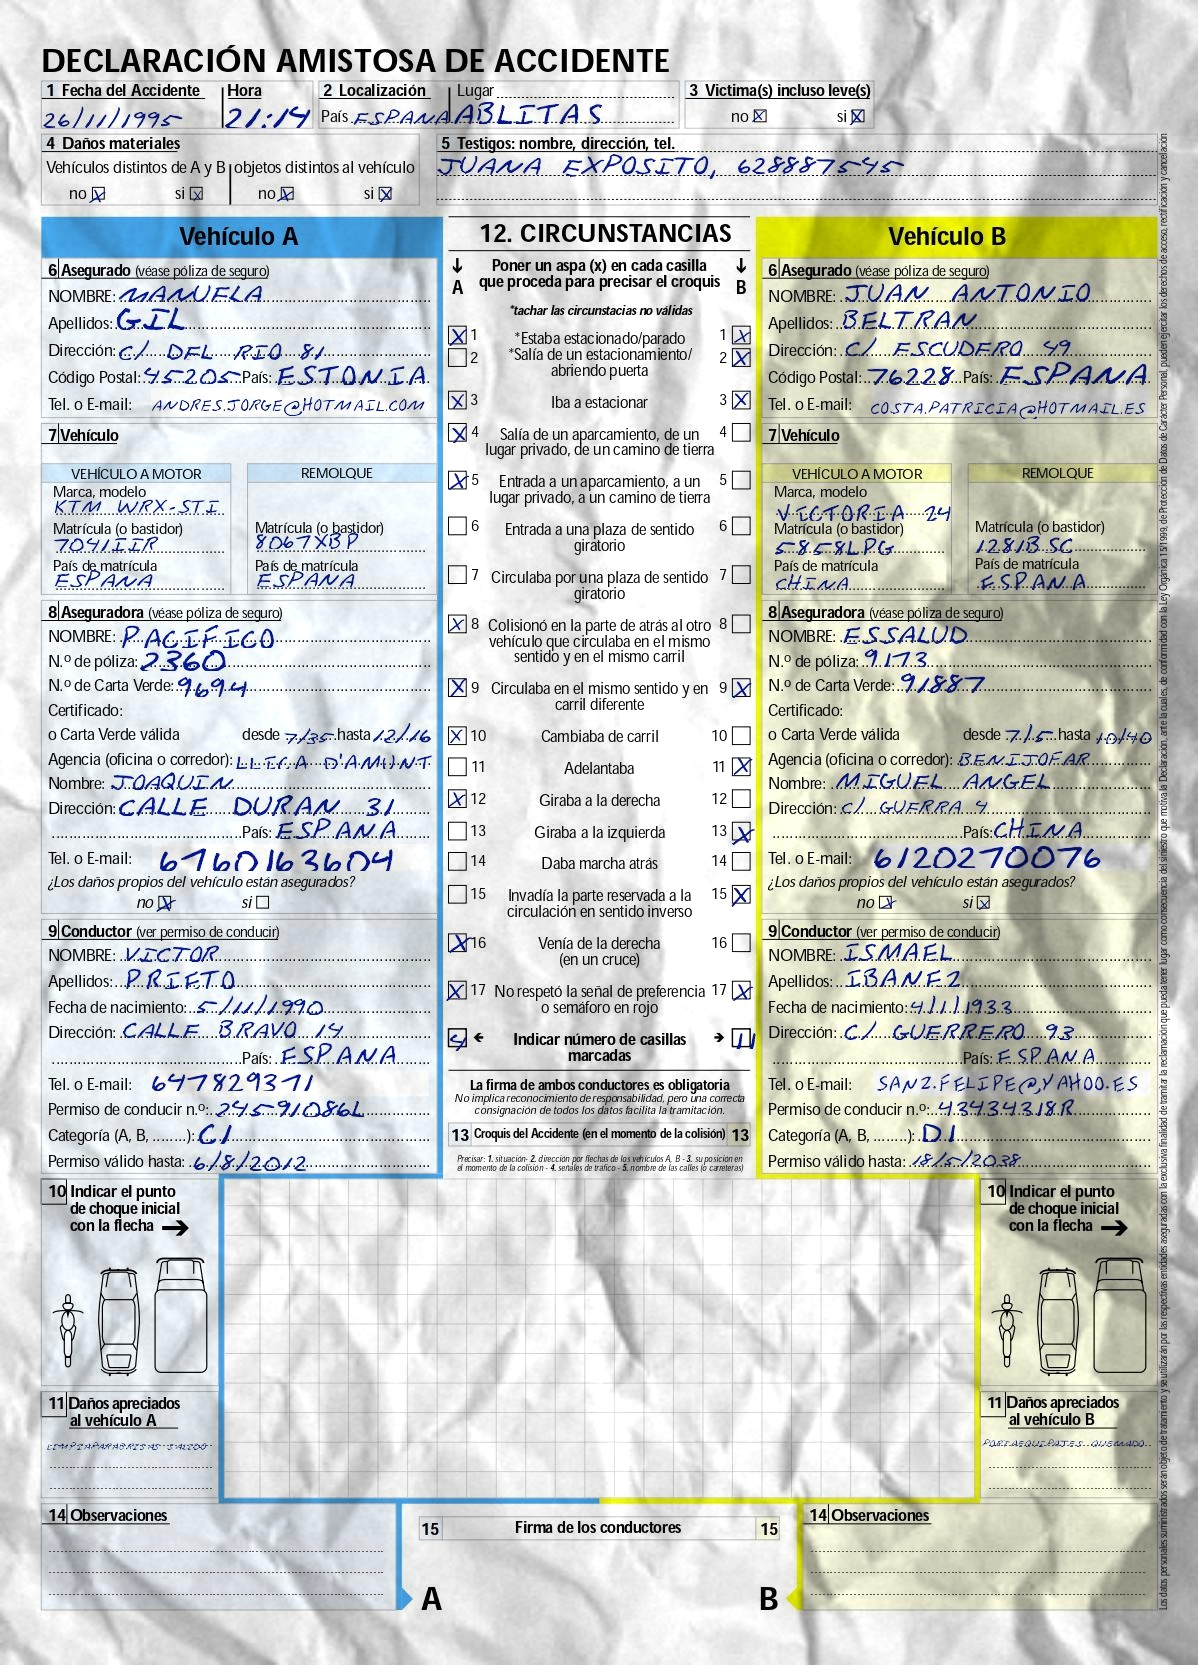 DECLARACIÓN AMISTOSA DE ACCIDENTE
1 Fecha del Accidente Hora 2 Localización Lugar 3 Victima(s) incluso leve(s)
26/11/1995 21:14 País ESPANA ABLITAS no X si X
4 Daños materiales 5 Testigos: nombre, dirección, tel.
Vehículos distintos de A y B objetos distintos al vehículo JUANA EXPOSITO, 628887545
no X si X no X si X
Vehículo A
6 Asegurado (véase póliza de seguro)
NOMBRE: MANUELA
Apellidos: GIL
Dirección: C/ DEL RIO 81
Código Postal: 45205 País: ESTONIA
Tel. o E-mail: ANDRES.JORGE@HOTMAIL.COM
7 Vehículo
VEHÍCULO A MOTOR REMOLQUE
Marca, modelo
KTM WRX-STI
Matrícula (o bastidor) Matrícula (o bastidor)
7041IIR 8067XBP
País de matrícula País de matrícula
ESPANA ESPANA
8 Aseguradora (véase póliza de seguro)
NOMBRE: PACIFICO
N.º de póliza: 2360
N.º de Carta Verde: 9694
Certificado:
o Carta Verde válida desde 7/35 hasta 12/16
Agencia (oficina o corredor): LLICA D'AMUNT
Nombre: JOAQUIN
Dirección: CALLE DURAN 31
País: ESPANA
Tel. o E-mail: 6760163604
¿Los daños propios del vehículo están asegurados?
no X si
9 Conductor (ver permiso de conducir)
NOMBRE: VICTOR
Apellidos: PRIETO
Fecha de nacimiento: 5/11/1990
Dirección: CALLE BRAVO 14
País: ESPANA
Tel. o E-mail: 647829371
Permiso de conducir n.º: 24591086L
Categoría (A, B, ........): C1
Permiso válido hasta: 6/8/2012
12. CIRCUNSTANCIAS
Poner un aspa (x) en cada casilla
A que proceda para precisar el croquis B
*tachar las circunstacias no válidas
X 1 *Estaba estacionado/parado 1 X
2 *Salía de un estacionamiento/ 2 X
abriendo puerta
X 3 Iba a estacionar 3 X
X 4 Salía de un aparcamiento, de un 4
lugar privado, de un camino de tierra
X 5 Entrada a un aparcamiento, a un 5
lugar privado, a un camino de tierra
6 Entrada a una plaza de sentido 6
giratorio
7 Circulaba por una plaza de sentido 7
giratorio
X 8 Colisionó en la parte de atrás al otro 8
vehículo que circulaba en el mismo
sentido y en el mismo carril
X 9 Circulaba en el mismo sentido y en 9 X
carril diferente
X 10 Cambiaba de carril 10
11 Adelantaba 11 X
X 12 Giraba a la derecha 12
13 Giraba a la izquierda 13 X
14 Daba marcha atrás 14
15 Invadía la parte reservada a la 15 X
circulación en sentido inverso
X 16 Venía de la derecha 16
(en un cruce)
X 17 No respetó la señal de preferencia 17 X
o semáforo en rojo
4 ← Indicar número de casillas → 11
marcadas
La firma de ambos conductores es obligatoria
No implica reconocimiento de responsabilidad, pero una correcta
consignación de todos los datos facilita la tramitación.
13 Croquis del Accidente (en el momento de la colisión) 13
Precisar: 1. situación- 2. dirección por flechas de los vehículos A, B - 3. su posición en
el momento de la colisión - 4. señales de tráfico - 5. nombre de las calles (o carreteras)
Vehículo B
6 Asegurado (véase póliza de seguro)
NOMBRE: JUAN ANTONIO
Apellidos: BELTRAN
Dirección: C/ ESCUDERO 49
Código Postal: 76228 País: ESPANA
Tel. o E-mail: COSTA.PATRICIA@HOTMAIL.ES
7 Vehículo
VEHÍCULO A MOTOR REMOLQUE
Marca, modelo
VICTORIA 24
Matrícula (o bastidor) Matrícula (o bastidor)
5858LPG 1281BSC
País de matrícula País de matrícula
CHINA ESPANA
8 Aseguradora (véase póliza de seguro)
NOMBRE: ESSALUD
N.º de póliza: 9173
N.º de Carta Verde: 91887
Certificado:
o Carta Verde válida desde 7/5 hasta 10/40
Agencia (oficina o corredor): BENIJOFAR
Nombre: MIGUEL ANGEL
Dirección: C/ GUERRA 4
País: CHINA
Tel. o E-mail: 6120270076
¿Los daños propios del vehículo están asegurados?
no X si X
9 Conductor (ver permiso de conducir)
NOMBRE: ISMAEL
Apellidos: IBANEZ
Fecha de nacimiento: 4/1/1933
Dirección: C/ GUERRERO 93
País: ESPANA
Tel. o E-mail: SANZ.FELIPE@YAHOO.ES
Permiso de conducir n.º: 43434318R
Categoría (A, B, ........): D1
Permiso válido hasta: 18/5/2038
10 Indicar el punto
de choque inicial
con la flecha →
11 Daños apreciados
al vehículo A
LIMPIAPARABRISAS SALIDO
10 Indicar el punto
de choque inicial
con la flecha →
11 Daños apreciados
al vehículo B
PORTAEQUIPAJES QUEMADO
14 Observaciones
15 Firma de los conductores 15
A B
14 Observaciones
Los datos personales suministrados serán objeto de tratamiento y se utilizarán por las respectivas entidades aseguradas con la exclusiva finalidad de tramitar la reclamación que pueda tener lugar como consecuencia del siniestro que motiva la Declaración, ante la cuales, de conformidad con la Ley Orgánica 15/1999, de Protección de Datos de Carácter Personal, pueden ejercitar los derechos de acceso, rectificación y cancelación